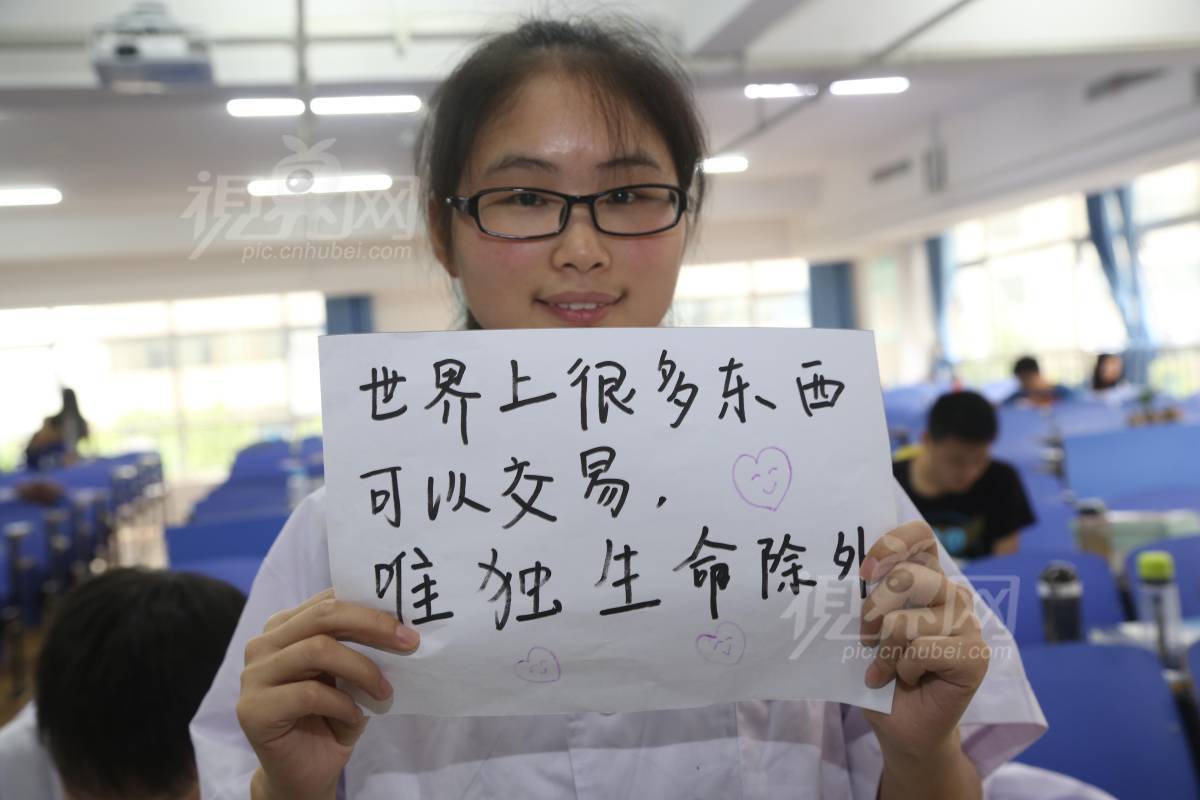 視界网
pic.cnhubei.com
世界上很多东西
可以交易，
唯独生命除外
視界网
pic.cnhubei.com